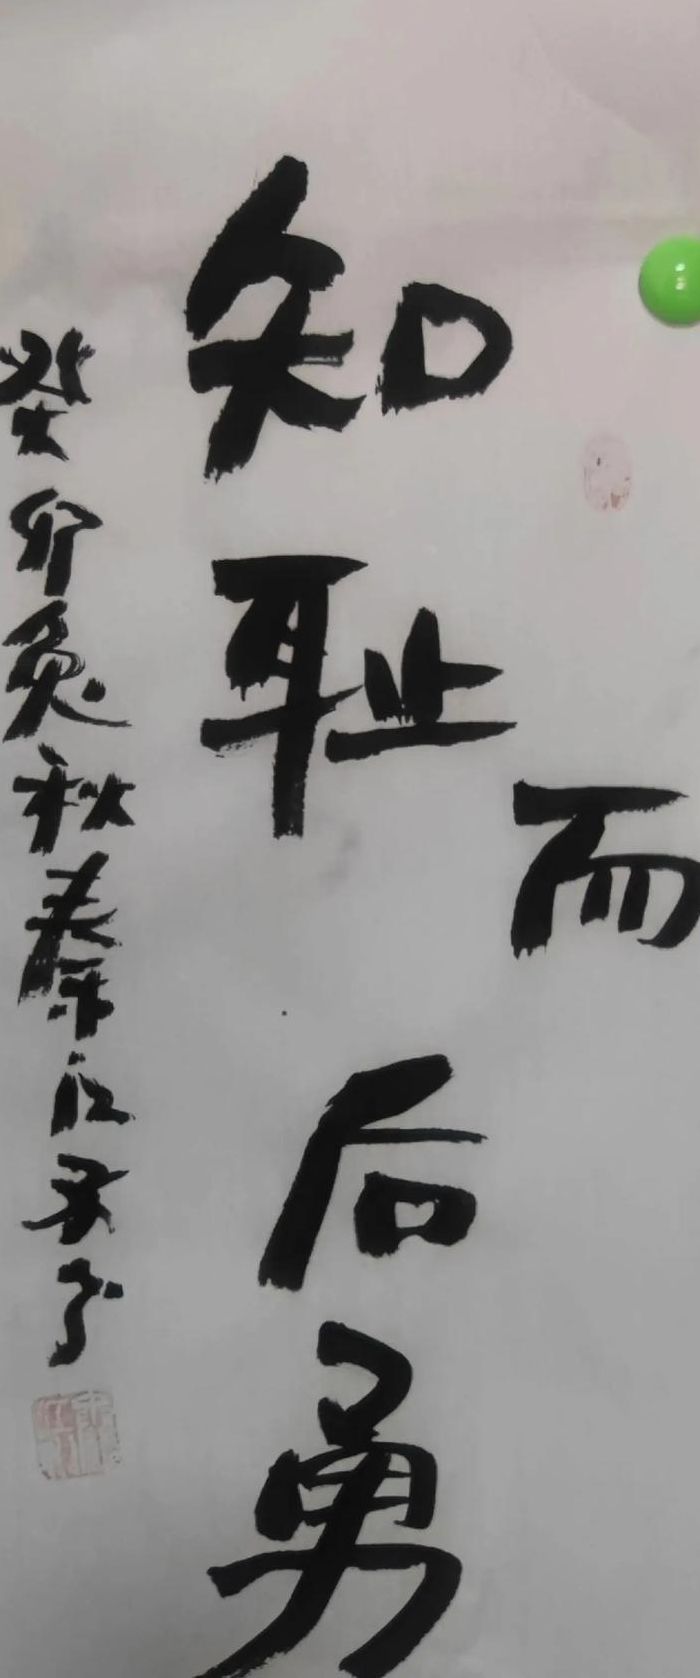 知耻而后勇
癸卯兔秋秦江